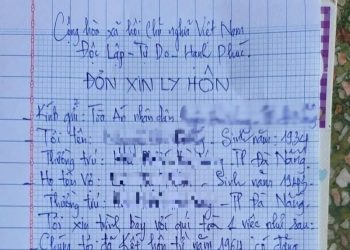 Cộng hòa xã hội Chủ nghĩa Việt Nam
Độc Lập - Tự Do - Hạnh Phúc.
ĐƠN XIN LY HÔN
- Kính gửi: Tòa Án nhân dân
- Tôi tên: - Sinh năm: 1934
Thường trú: - TP Đà Nẵng.
- Họ tên Vợ: - Sinh năm 1943
Thường trú: TP Đà Nẵng.
Tôi xin trình bày với quí Tòa 1 việc như sau:
Chúng tôi đã Kết hôn từ năm 1964